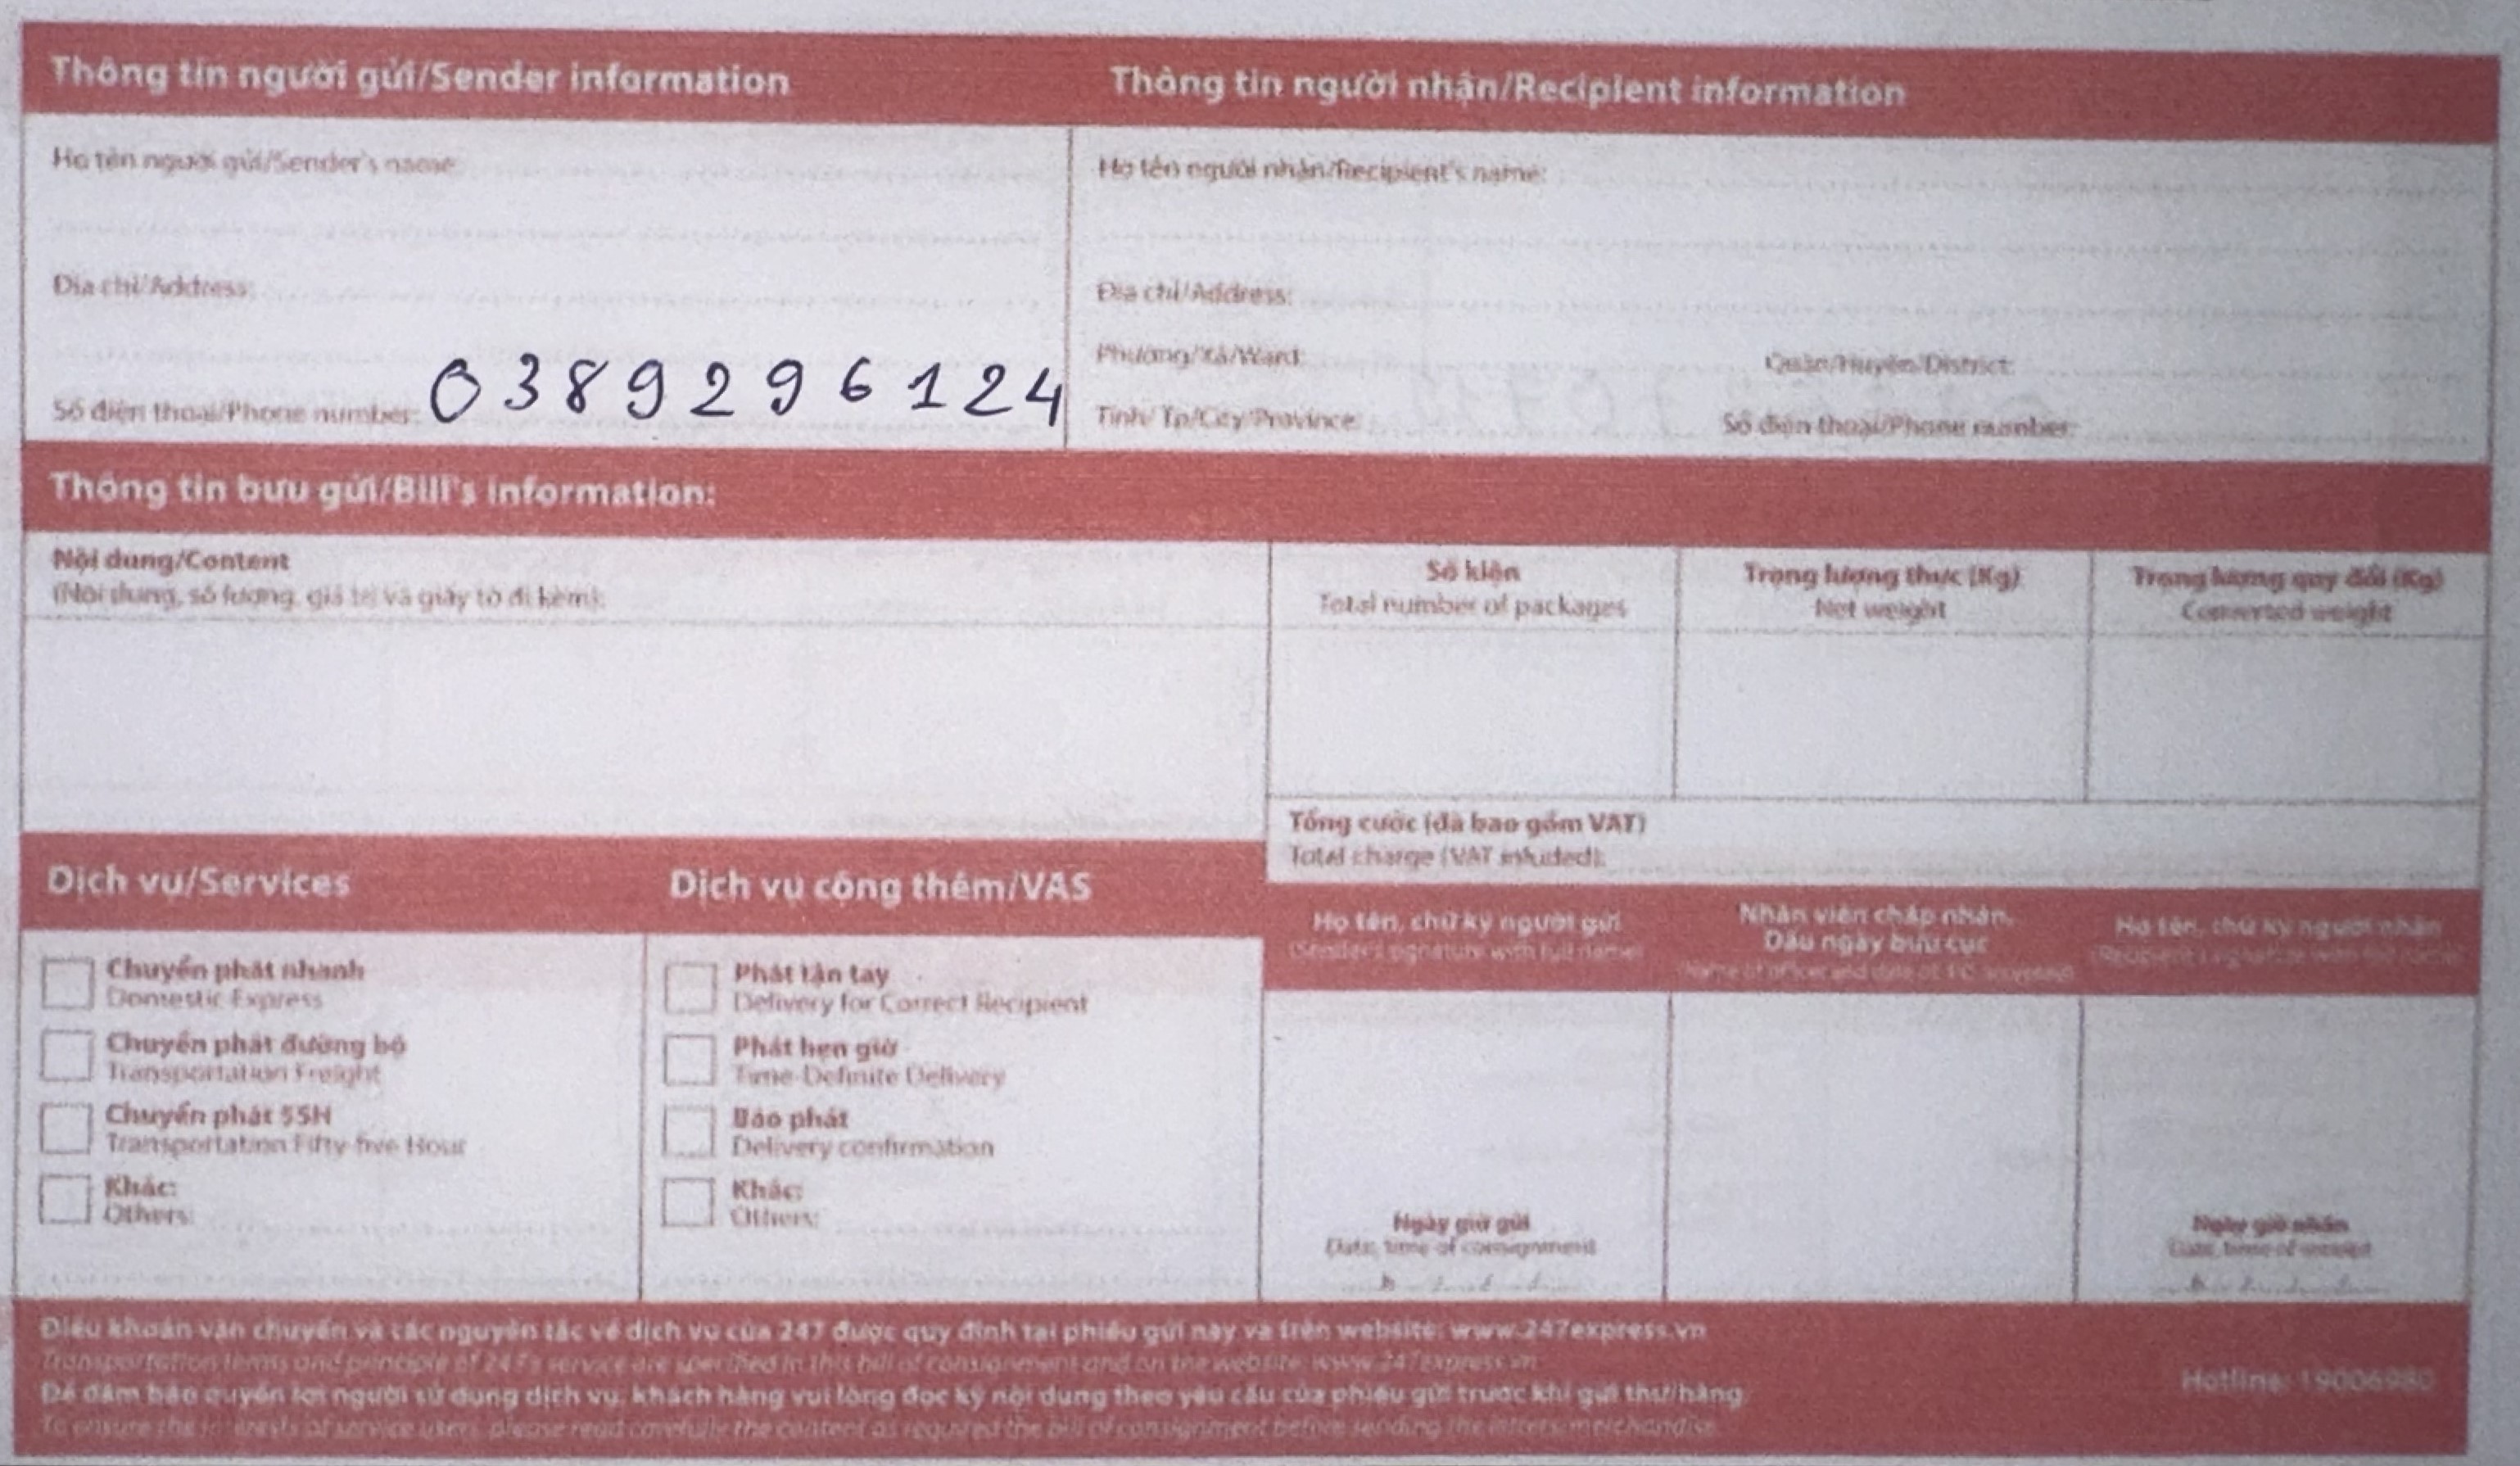 Thông tin người gửi/Sender information
Thông tin người nhận/Recipient information
Họ tên người gửi/Sender's name:
Địa chỉ/Address:
Số điện thoại/Phone number: 0389296124
Họ tên người nhận/Recipient's name:
Địa chỉ/Address:
Phường/Xã/Ward:
Quận/Huyện/District:
Tỉnh/ Tp/City/Province:
Số điện thoại/Phone number:
Thông tin bưu gửi/Bill's information:
Nội dung/Content
(Nội dung, số lượng, giá trị và giấy tờ đi kèm):
Số kiện
Total number of packages
Trọng lượng thực (Kg)
Net weight
Trọng lượng quy đổi (Kg)
Converted weight
Tổng cước (đã bao gồm VAT)
Total charge (VAT included):
Dịch vụ/Services
Chuyển phát nhanh
Domestic Express
Chuyển phát đường bộ
Transportation Freight
Chuyển phát 55H
Transportation Fifty-five Hour
Khác:
Others:
Dịch vụ cộng thêm/VAS
Phát tận tay
Delivery for Correct Recipient
Phát hẹn giờ
Time-Definite Delivery
Báo phát
Delivery confirmation
Khác:
Others:
Họ tên, chữ ký người gửi
(Sender's signature with full name)
Nhân viên chấp nhận,
Dấu ngày bưu cục
Họ tên, chữ ký người nhận
(Recipient's signature with full name)
Ngày giờ gửi
Date, time of consignment
Ngày giờ nhận
Date, time of receipt
Điều khoản vận chuyển và các nguyên tắc về dịch vụ của 247 được quy định tại phiếu gửi này và trên website: www.247express.vn
Transportation terms and principle of 247's service are specified in this bill of consignment and on the website: www.247express.vn
Để đảm bảo quyền lợi người sử dụng dịch vụ, khách hàng vui lòng đọc kỹ nội dung theo yêu cầu của phiếu gửi trước khi gửi thư/hàng
To ensure the interests of service users, please read carefully the content as required the bill of consignment before sending the letters/merchandise
Hotline: 19006980